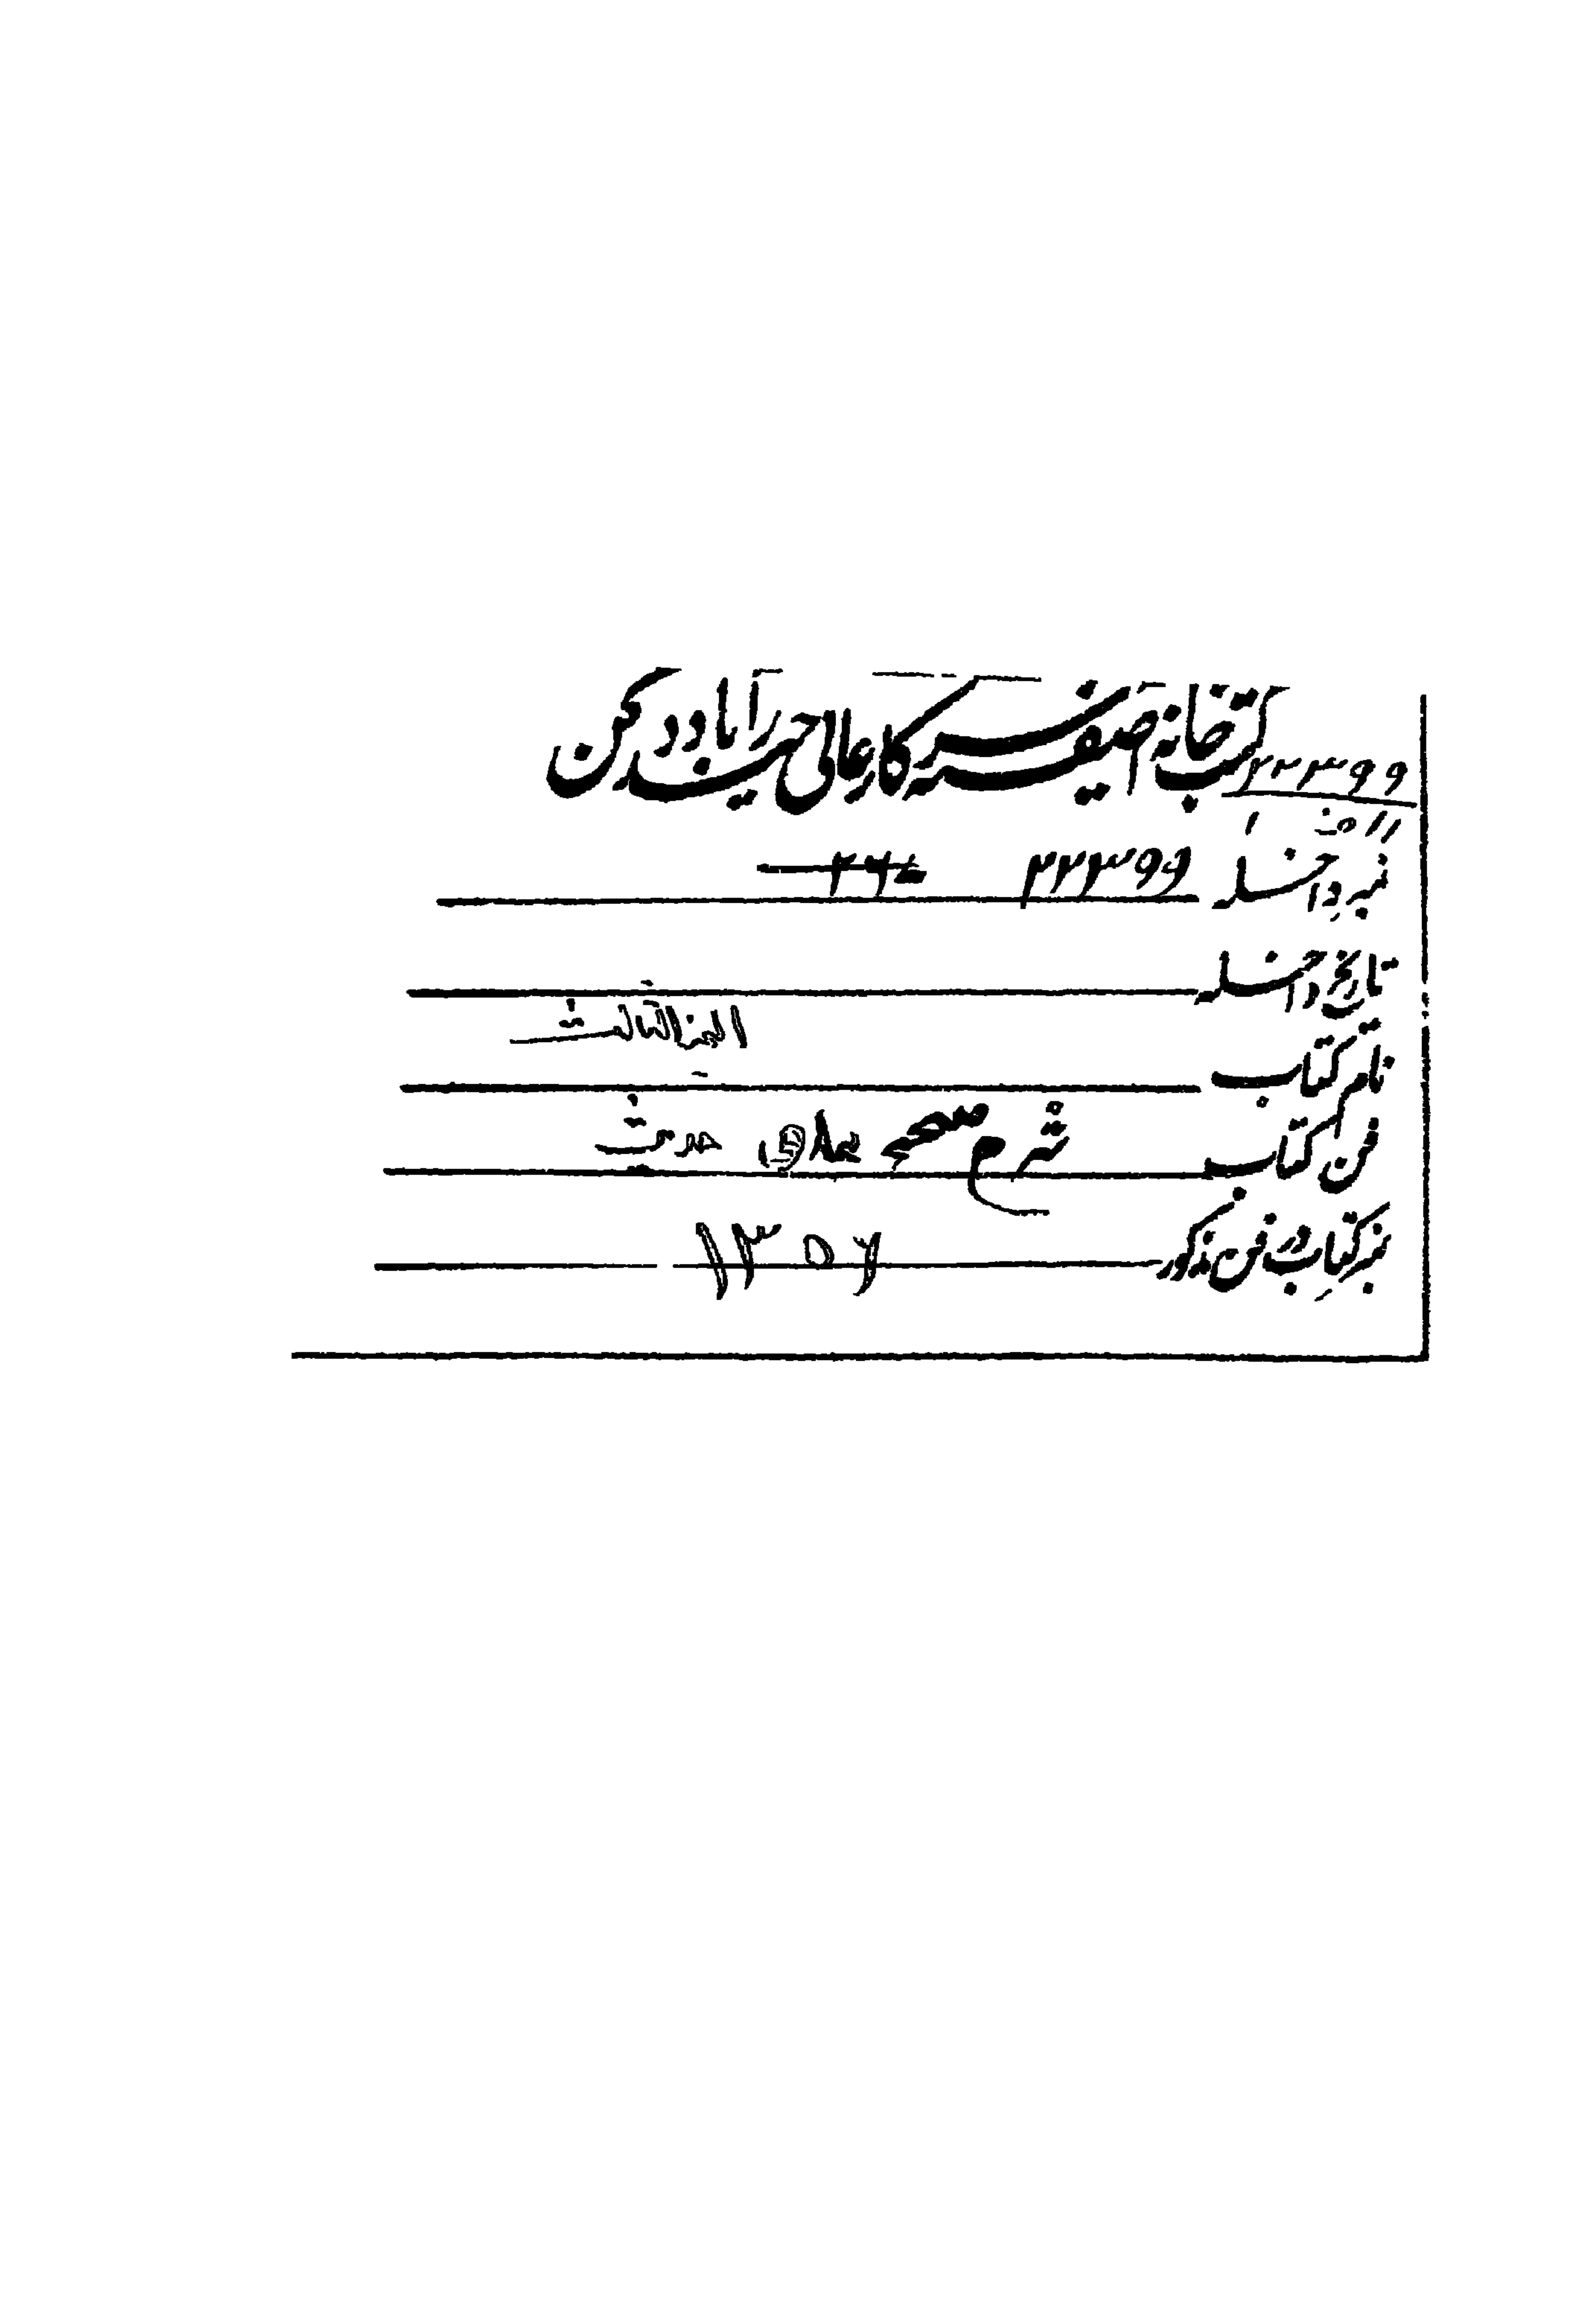 کتب خانہ آصفیہ سرکار عالی حیدرآباد دکن
۲۲۳۹۹
نمبر داخلہ ۲۲۳۹۹
تاریخ داخلہ
نام کتاب الجزء الثالث
فن کتاب شرح صحیح بخاری حدیث
نمبر کتاب در فن مذکور ۱۳۵۶